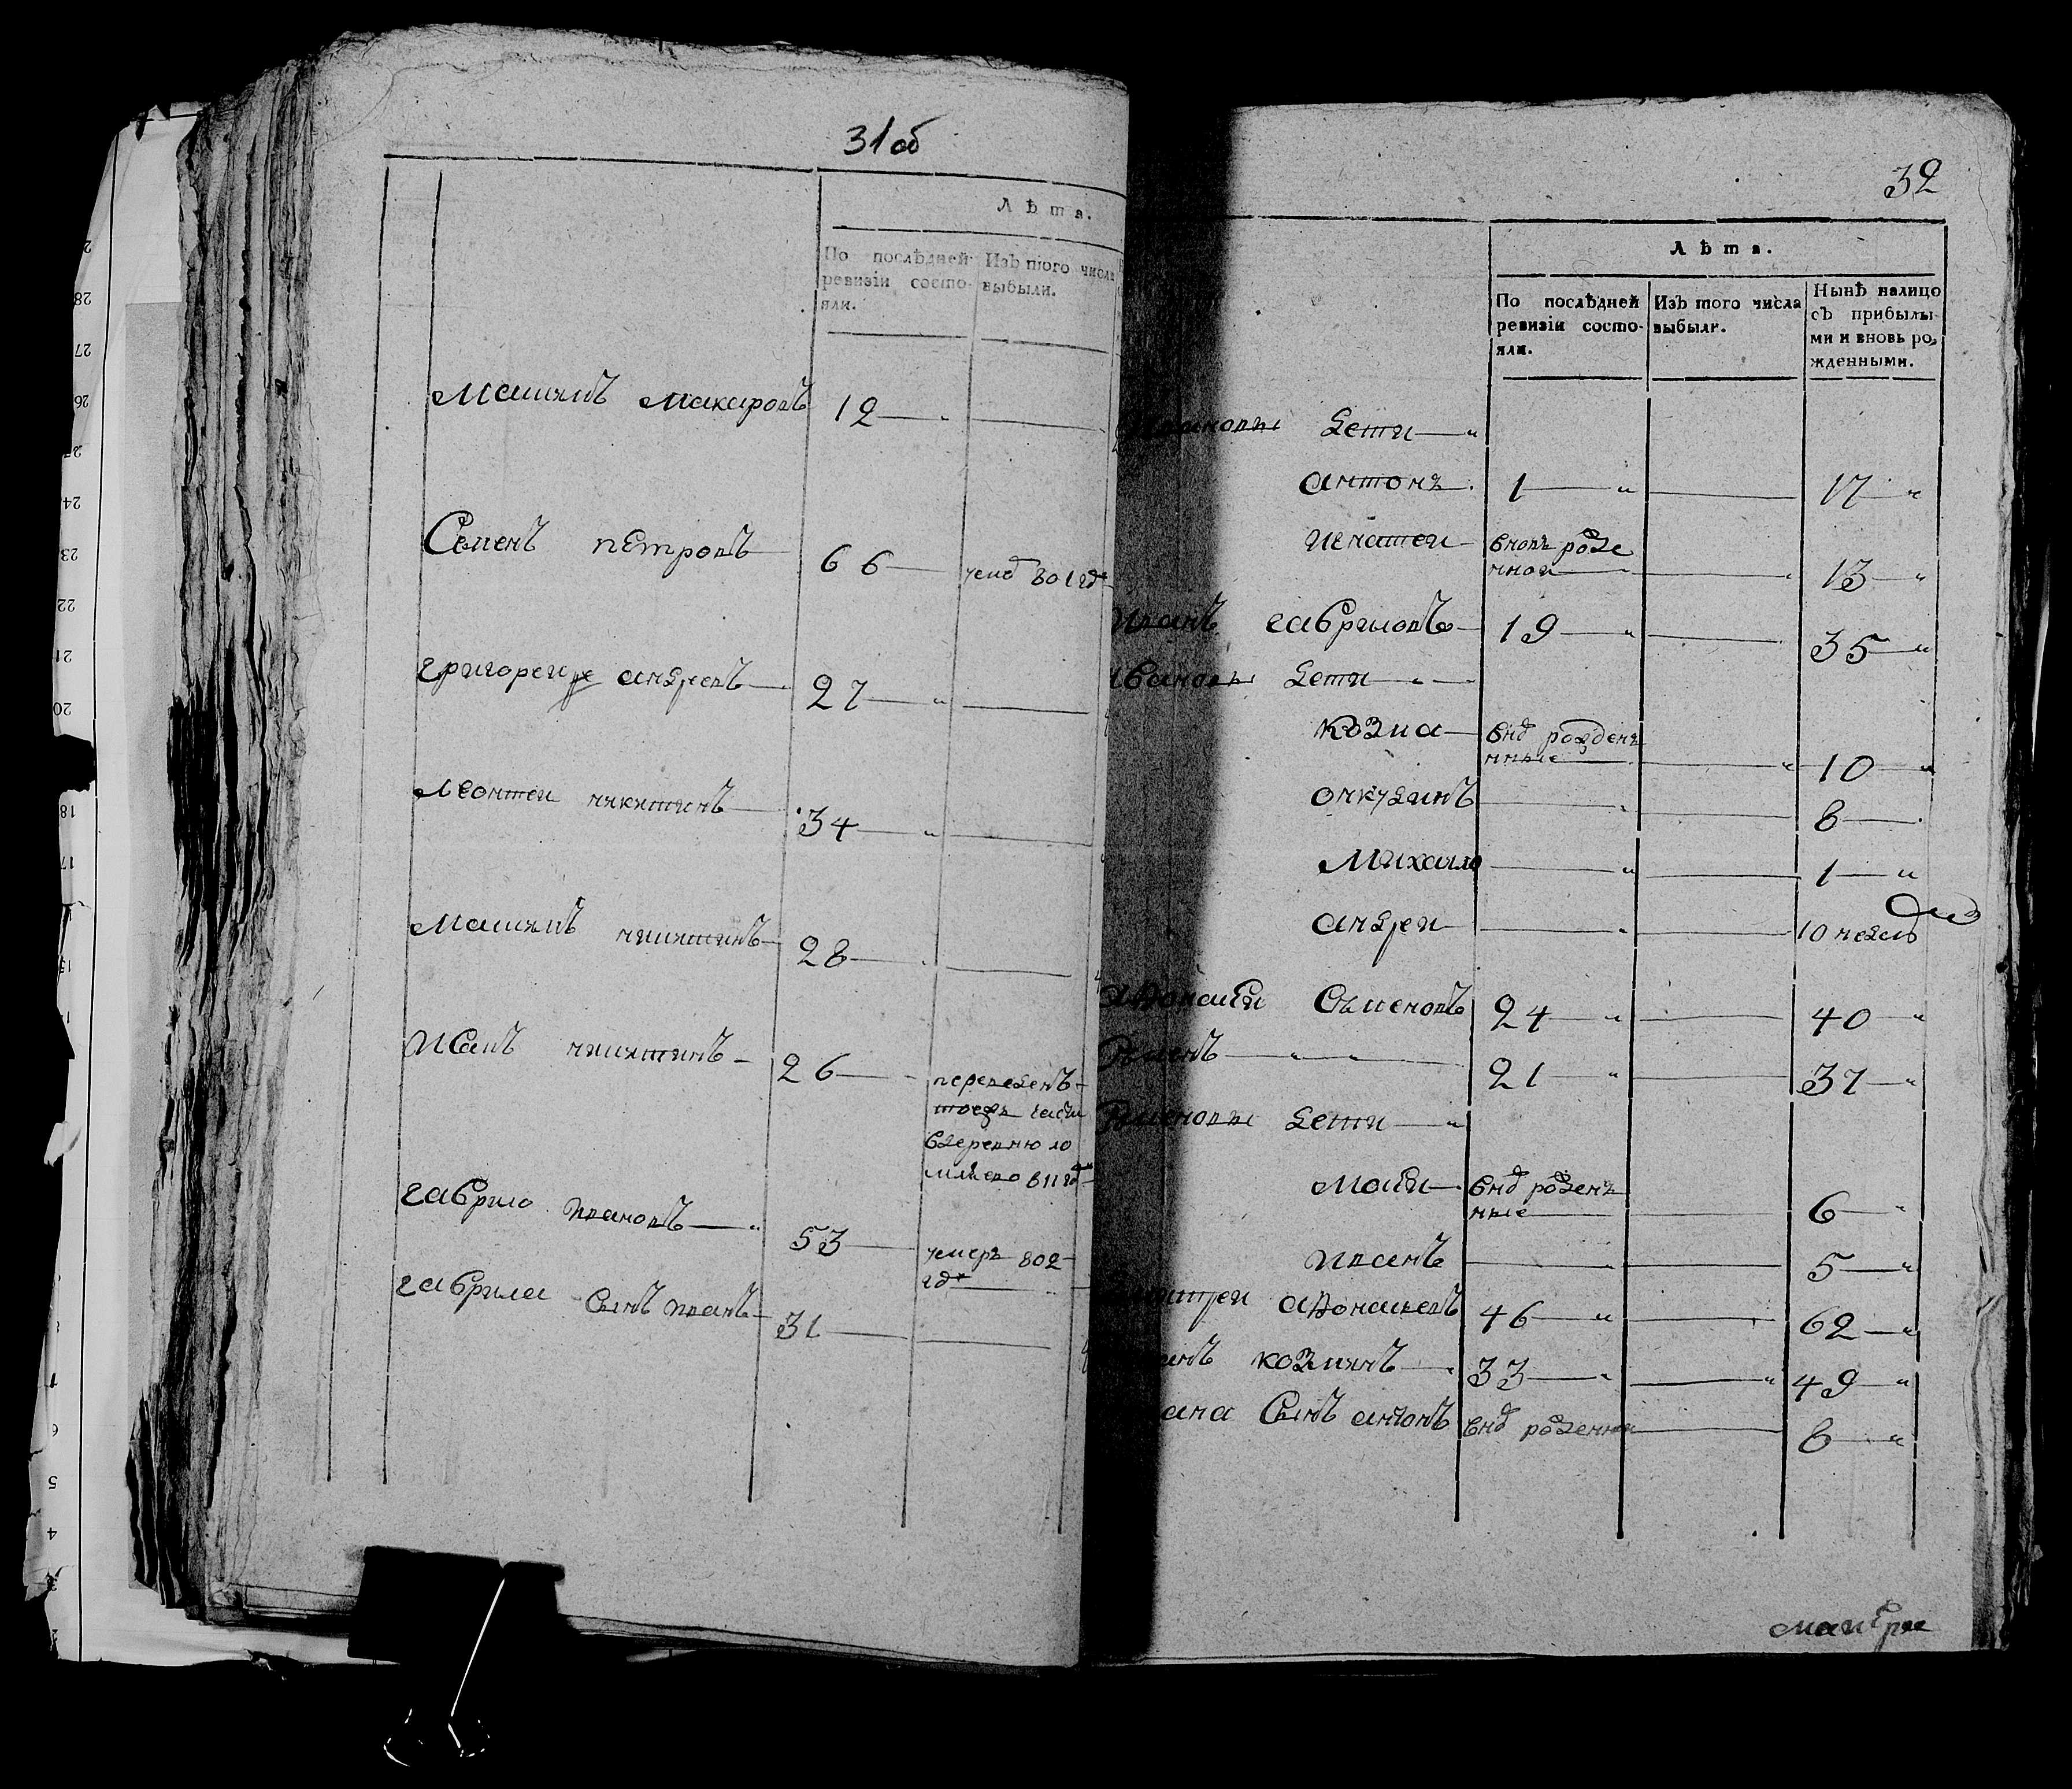 31об
Лѣта.
По послѣдней ревизіи состо-
яли.
Изъ того числа
выбыли.
Максимъ Макаровъ 12
Семенъ петровъ 66 умед 801 год
григореи андревъ 27
леонтеи никитинъ 34
Максимъ никитинъ 28
Исакъ никитинъ 26 переведенъ
вдеревню
811 год
гаврило ивановъ 53 умеръ 802
год
гаврила сынъ иванъ 31
32
Лѣта.
По послѣдней
ревизіи состо-
яли.
Изъ того числа
выбыли.
Нынѣ налицо
съ прибылы-
ми и вновь ро-
жденными.
Ивановы дети
антонъ 1 17
игнатеи вновь рожде
нной 13
Иванъ гавриловъ 19 35
Ивановы дети
козма внов рожденъ
нные 10
анкудинъ 8
Михаило 1
андреи 10 недель
Афонасеи Семеновъ 24 40
Семенъ 21 37
Семеновы дети
Мосеи внов рожденъ
ные 6
иванъ 5
афонасьевъ 46 62
козминъ 33 49
сынъ антонъ внов рожденны 8